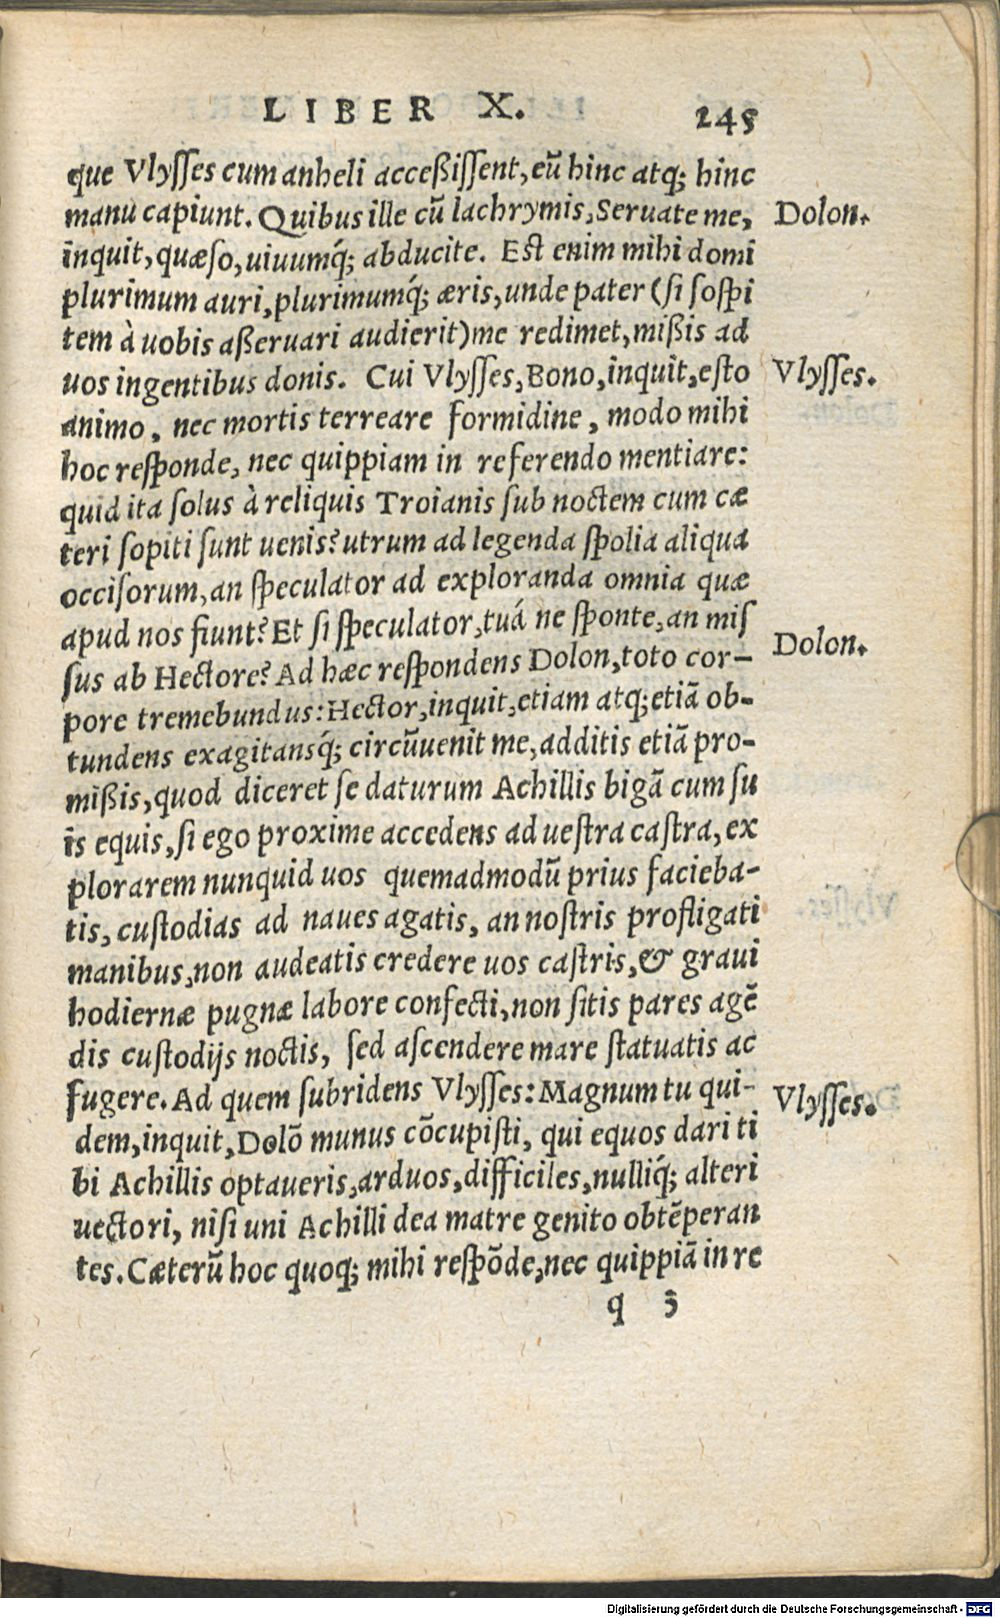 LIBER X. 245
que Vlyſſes cum anheli acceßiſſent, eũ hinc atq; hinc
manu capiunt. Quibus ille cũ lachrymis, Seruate me,
Dolon.
inquit, quæſo, uiuumq́; abducite. Est enim mihi domi
plurimum auri, plurimumq́; æris, unde pater (ſi ſoſpi
tem à uobis aßeruari audierit) me redimet, mißis ad
uos ingentibus donis. Cui Vlyſſes, Bono, inquit, eſto
Vlyſſes.
animo, nec mortis terreare formidine, modo mihi
hoc reſponde, nec quippiam in referendo mentiare:
quid ita ſolus à reliquis Troianis ſub noctem cum cæ
teri ſopiti ſunt uenis? utrum ad legenda ſpolia aliqua
occiſorum, an ſpeculator ad exploranda omnia quæ
apud nos fiunt? Et ſi ſpeculator, tuá ne ſponte, an miſ
ſus ab Hectore? Ad hæc reſpondens Dolon, toto cor-
Dolon.
pore tremebundus: Hector, inquit, etiam atq; etiã ob-
tundens exagitansq́; circũuenit me, additis etiã pro-
mißis, quod diceret ſe daturum Achillis bigã cum ſu
is equis, ſi ego proxime accedens ad ueſtra caſtra, ex
plorarem nunquid uos quemadmodũ prius facieba-
tis, cuſtodias ad naues agatis, an noſtris profligati
manibus, non audeatis credere uos caſtris, & graui
hodiernæ pugnæ labore confecti, non ſitis pares agẽ
dis cuſtodijs noctis, ſed aſcendere mare ſtatuatis ac
fugere. Ad quem ſubridens Vlyſſes: Magnum tu qui-
Vlyſſes.
dem, inquit, Dolõ munus cõcupiſti, qui equos dari ti
bi Achillis optaueris, arduos, difficiles, nulliq́; alteri
uectori, niſi uni Achilli dea matre genito obtẽperan
tes. Cæterũ hoc quoq; mihi reſpõde, nec quippiã in re
q 3
Digitalisierung gefördert durch die Deutsche Forschungsgemeinschaft - DFG